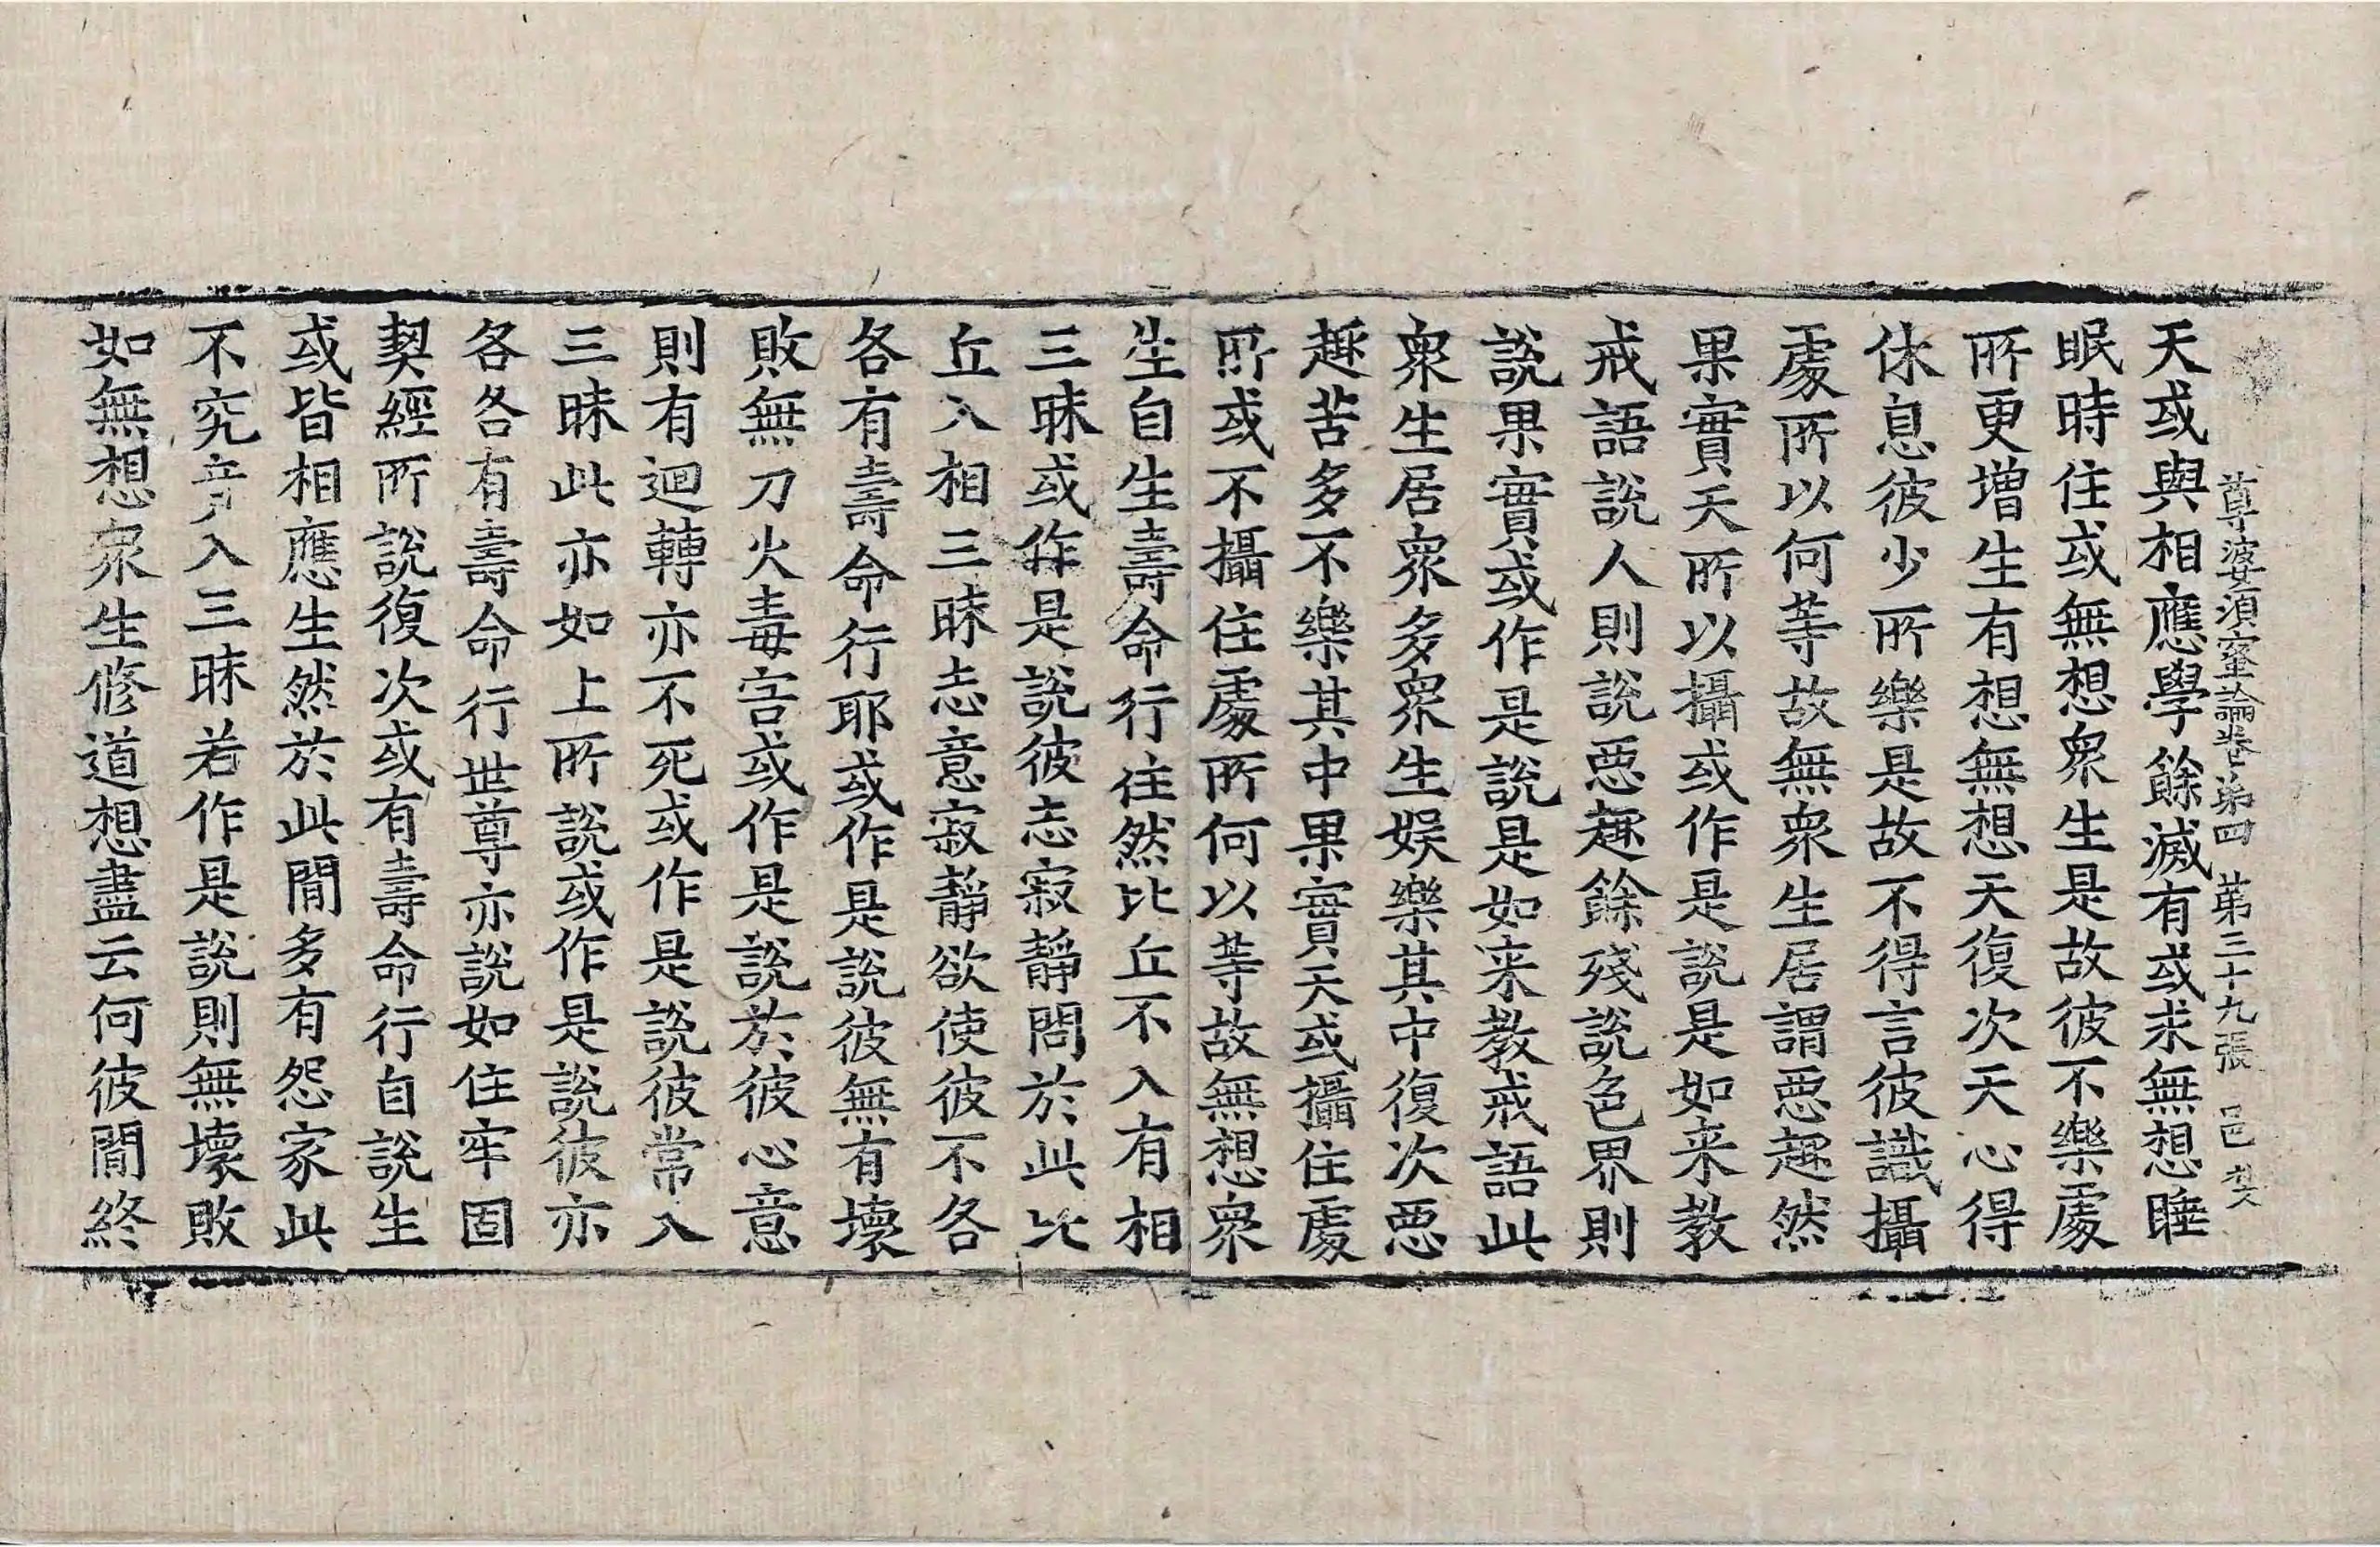 尊婆須蜜論卷第四 第三十九張 邑
天或與相應學餘滅有或求無想睡
眠時住或無想眾生是故彼不樂處
所更增生有想無想天復次天心得
休息彼少所樂是故不得言彼識攝
處所以何等故無眾生居謂惡趣然
果實天所以攝或作是說是如来教
戒語說人則說惡趣餘殘說色界則
說果實或作是說是如来教戒語此
眾生居眾多眾生娛樂其中復次惡
趣苦多不樂其中果實天或攝住處
所或不攝住處所何以等故無想眾
生自生壽命行住然比丘不入有相
三昧或作是說彼志寂靜問於此比
丘入相三昧志意寂靜欲使彼不各
各有壽命行耶或作是說彼無有壞
敗無刀火毒害或作是說於彼心意
則有迴轉亦不死或作是說彼常入
三昧此亦如上所說或作是說彼亦
各各有壽命行世尊亦說如住牢固
契經所說復次或有壽命行自說生
或皆相應生然於此間多有怨家此
不究竟入三昧若作是說則無壞敗
如無想眾生修道想盡云何彼間終